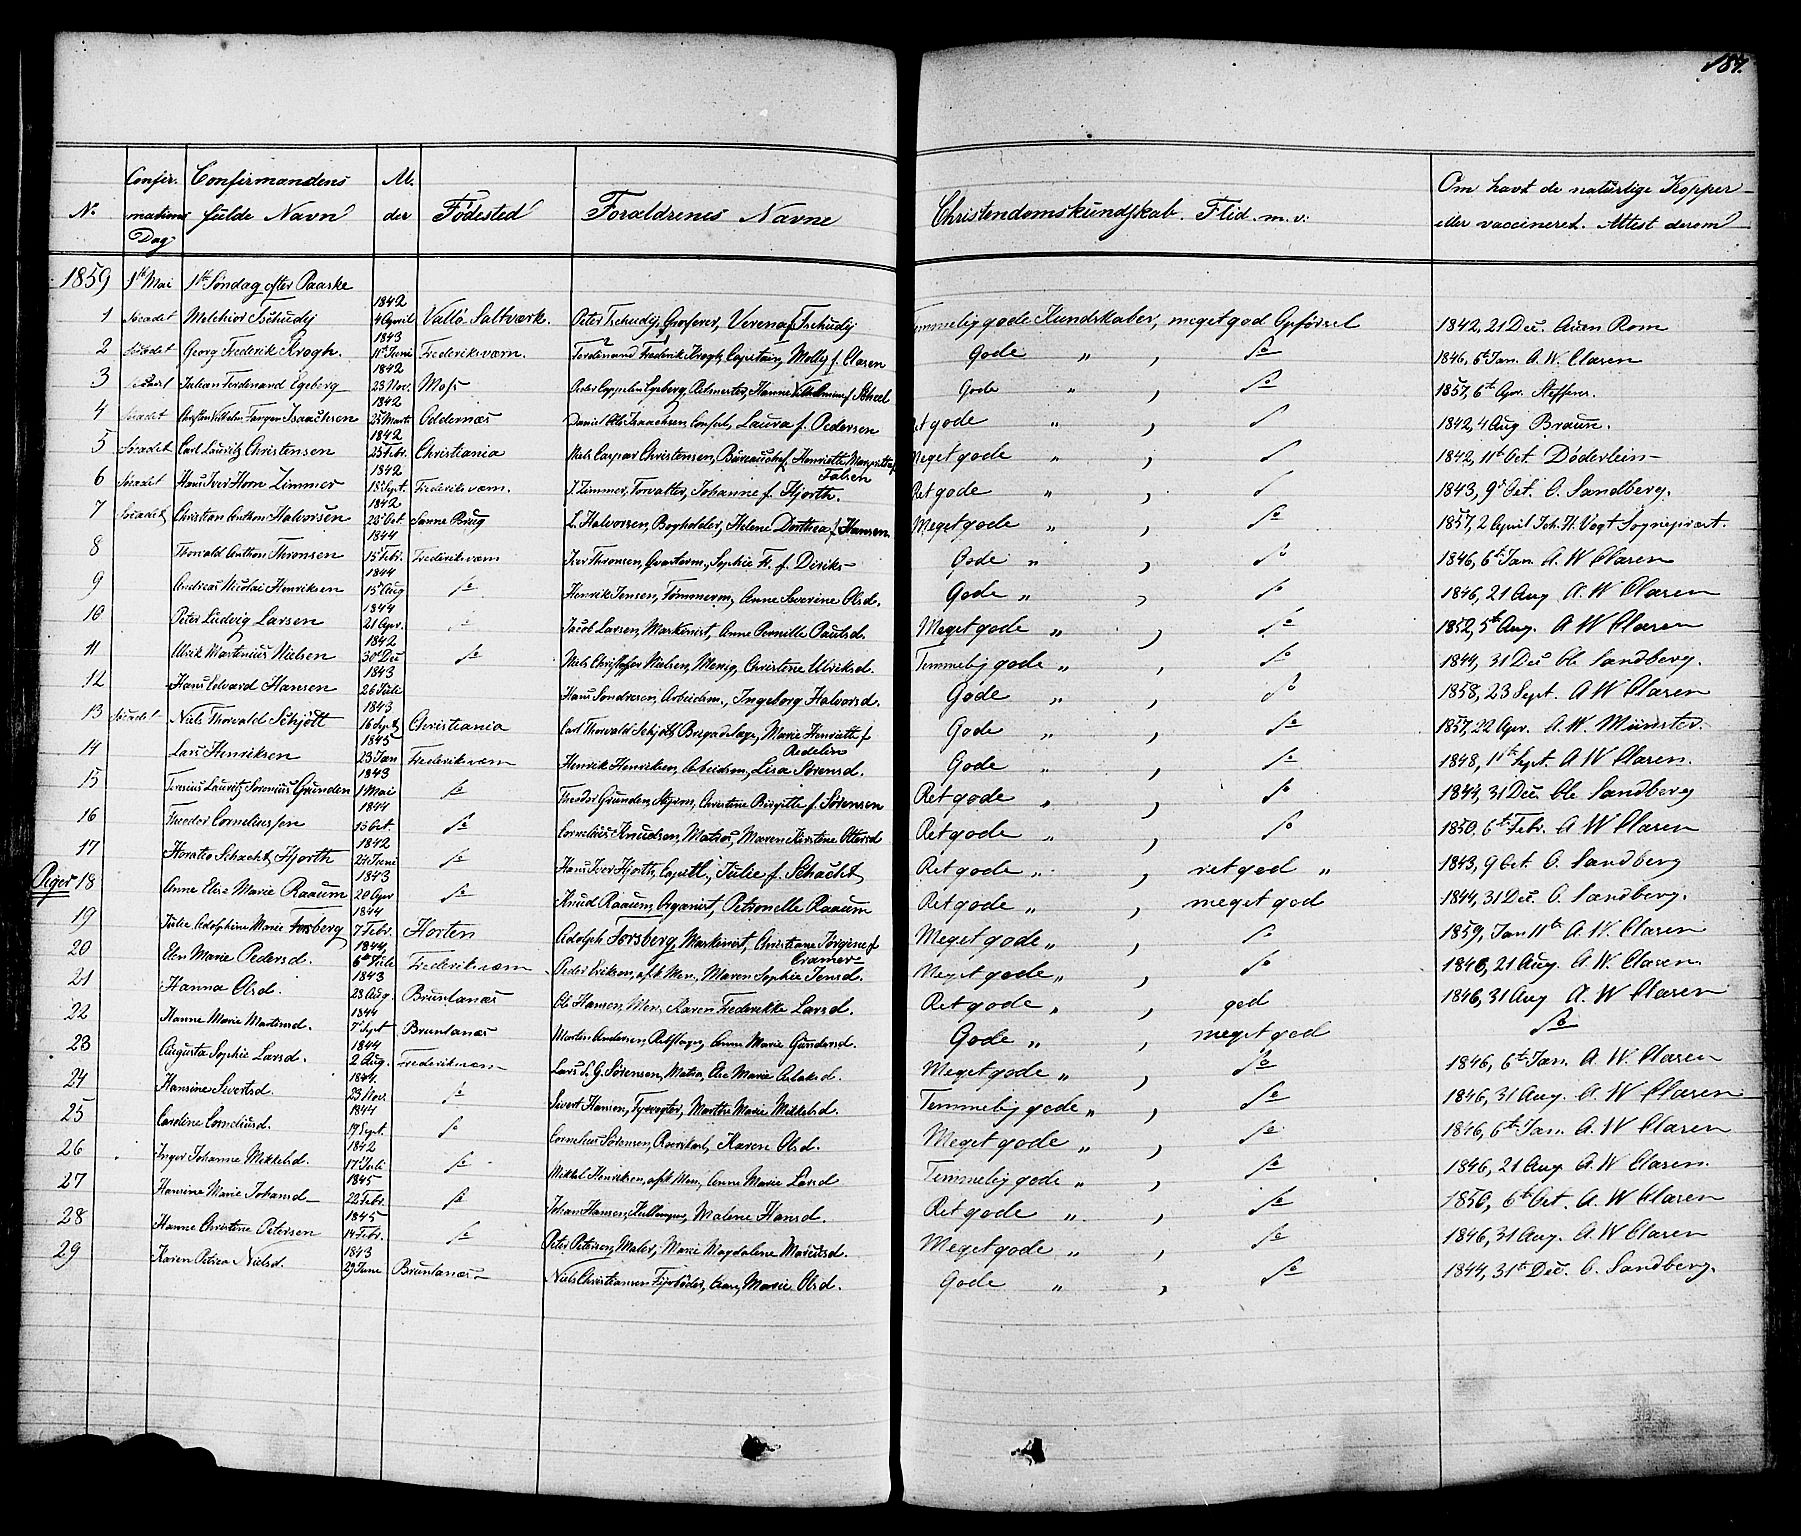 187.
No Confirmations Dag Confirmandens fulde Navn Alder Fødested Forældrenes Navne Christendomskundskab. Flid. m. v: Om havt de naturlige Kopper eller vaccineret. Attest derom
1859 1ste Mai 1ste Søndag efter Paaske
1 Søcadet Melchior Tschudy 1842 4 April Vallö Saltværk. Peter Tschudy, Grosserer, Verena f. Tschudy Temmelig gode Kundskaber, meget god Opførsel 1842, 21 Dec.
2 Søcadet Georg Frederik Krogh. 1843 11te Juni Frederiksværn. Ferdinand Frederik Krogh, Capitain, Molly f. Claren Gode " , do 1846, 6te Jan. A. W. Claren
3 Søcadet Julian Ferdinand Egeberg 1842 23 Nov. Moss Peder Cappelen Egeberg, Hanne Vilhelmine f. Scheel Gode " , do 1857, 6te Apr. Steffens.
4 Søcadet Isaachsen 1842 25 Marts Oddernæs Daniel Otto Isaachsen, Consul, Laura f. Pedersen Ret gode " , do 1842, 4 Aug. Braun.
5 Søcadet Carl Lauritz Christensen 1842 25 Febr. Christiania Niels Caspar Christensen, Büreauchef, Henriette Margrethe f. Falsen Meget gode " , do 1842, 11te Oct. Döderlein
6 Søcadet Hans Iver Horn Zimmer 1842 18 Sept. Frederiksværn. J. Zimmer, Forvalter, Johanne f. Hjorth. Ret gode " , do 1843, 9de Oct. O. Sandberg.
7 Søcadet Christian Anthon Halvorsen 1842 28 Oct Sanne Brug L. Halvorsen, Bogholder, Helene Dorthea f. Hansen Meget gode " , do 1857, 2 April Joh. H. Vogt Sognepræst.
8 Thorvald Anthon Thronsen 1844 15 Febr. Frederiksværn Iver Thronsen, Qvarterm., Sophie H. f. Diriks Gode " , do 1846, 6te Jan. A. W Claren
9 Andreas Nicolai Henriksen 1844 15 Aug do Henrik Jensen, Tømmerm, Anne Severine Olsd. Gode " , do 1846, 21 Aug A. W Claren
10 Peter Ludvig Larsen 1844 21 Apr. do Jacob Larsen, Maskinist, Anne Pernille Paulsd. Meget gode " , do 1852, 5te Aug. A W Claren
11 Ulrik Martinius Nielsen 1842 30 Dec do Niels Christoffer Nielsen, Menig, Christine Ulriksd. Temmelig gode " , do 1844, 31 Dec Ole Sandberg.
12 Hans Edvard Hansen 1843 26 Juli Hans Søndresen, Arbeidsm., Ingeborg Halvorsd. Gode " , do 1858, 23 Sept. A W Claren
13 Søcadet Niels Thorvald Schjött 1843 16 Sept Christiania Carl Thorvald Schjött, Brigadelæge, Marie Henriette f. Gode " , do 1857, 22 Apr. A. W. Münster.
14 Lars Henriksen 1845 23 Jan Frederiksværn Henrik Henriksen, Arbeidsm, Lisa Sørensd. Gode " , do 1848, 11te Sept. A W Claren.
15 Lauritz Sorenius Grunden 1843 1 Mai do Theodor Grunden, Styrm, Christine Birgitte f. Sørensen Ret gode " , do 1844, 31 Dec. Ole Sandberg
16 Theodor Corneliussen 1844 13 Oct. do Cornelius Knudsen, Matros, Maren Kirstine Ottersd Ret gode " , do 1850. 6te Febr. A W Claren
17 Horatio Schacht Hjorth 1842 24 Juni do Hans Iver Hjorth, Capitl., Julie f. Schacht Ret gode " , ret god " 1843, 9 Oct. O. Sandberg
Piger 18 Anne Elise Marie Raaum 1843 20 Apr do Knud Raaum, Organist, Petronelle Raaum Ret gode " , meget god 1844, 31 Dec. O. Sandberg.
19 Julie Adolphine Marie Forsberg 1844 7 Febr. Horten Adolph Forsberg, Maskinist, Christiane Jørgine f. Cramer Meget gode " , do 1859, Jan 11te A. W. Claren
20 Elen Marie Pedersd. 1844, 6te Juli Frederiksværn Peder Eriksen, afsk. Men., Maren Sophie Jensd. Meget gode " , do 1846, 21 Aug. A. W. Claren.
21 Hanna Olsd. 1843 28 Aug. Brunlanæs Ole Hansen, Men., Karen Frederikke Larsd. Ret gode " , god 1846, 31 Aug A. W Claren
22 Hanne Marie Martinsd. 1844 7 Sept Brunlanæs Martin Andersen, Rebslager, Anne Marie Gundersd. Gode " , meget god do
23 Augusta Sophie Larsd. 1844 2 Aug. Frederiksværn Lars S. G. Sørensen, Matros, Else Marie Aslaksd. Meget gode " , do 1846, 6te Jan. A. W. Claren
24 Hansine Sivertsd. 1844. 23 Nov. do Sivert Hansen, Tyvogter, Marthe Marie Mikkelsd. Temmelig gode " , do 1846, 31 Aug. A. W Claren
25 Caroline Corneliusd. 1844 19 Sept. do Cornelius Sørensen, Karen Olsd. Meget gode " , do 1846, 6te Jan. A. W Claren
26 Inger Johanne Mikkelsd. 1842 17 Juli do Mikkel Henriksen, afsk. Men., Anne Marie Larsd Temmelig gode " , do 1846, 21 Aug. A. W Claren.
27 Hansine Marie Johansd 1845 22 Febr. do Johan Hansen, Malene Hansd. Ret gode " , do 1850, 6te Oct. A. W Claren
28 Hanne Christine Petersen 1845 14 Febr. do Peter Petersen, Maler, Marie Magdalene Mariusd. Meget gode " , do 1846, 31 Aug. A. W Claren
29 Karen Petrea Nielsd. 1843 29 June Brunlanæs Niels Christiansen Fyrbøder, Anne Marie Olsd. Gode " , do 1844, 31te Dec. O. Sandberg.